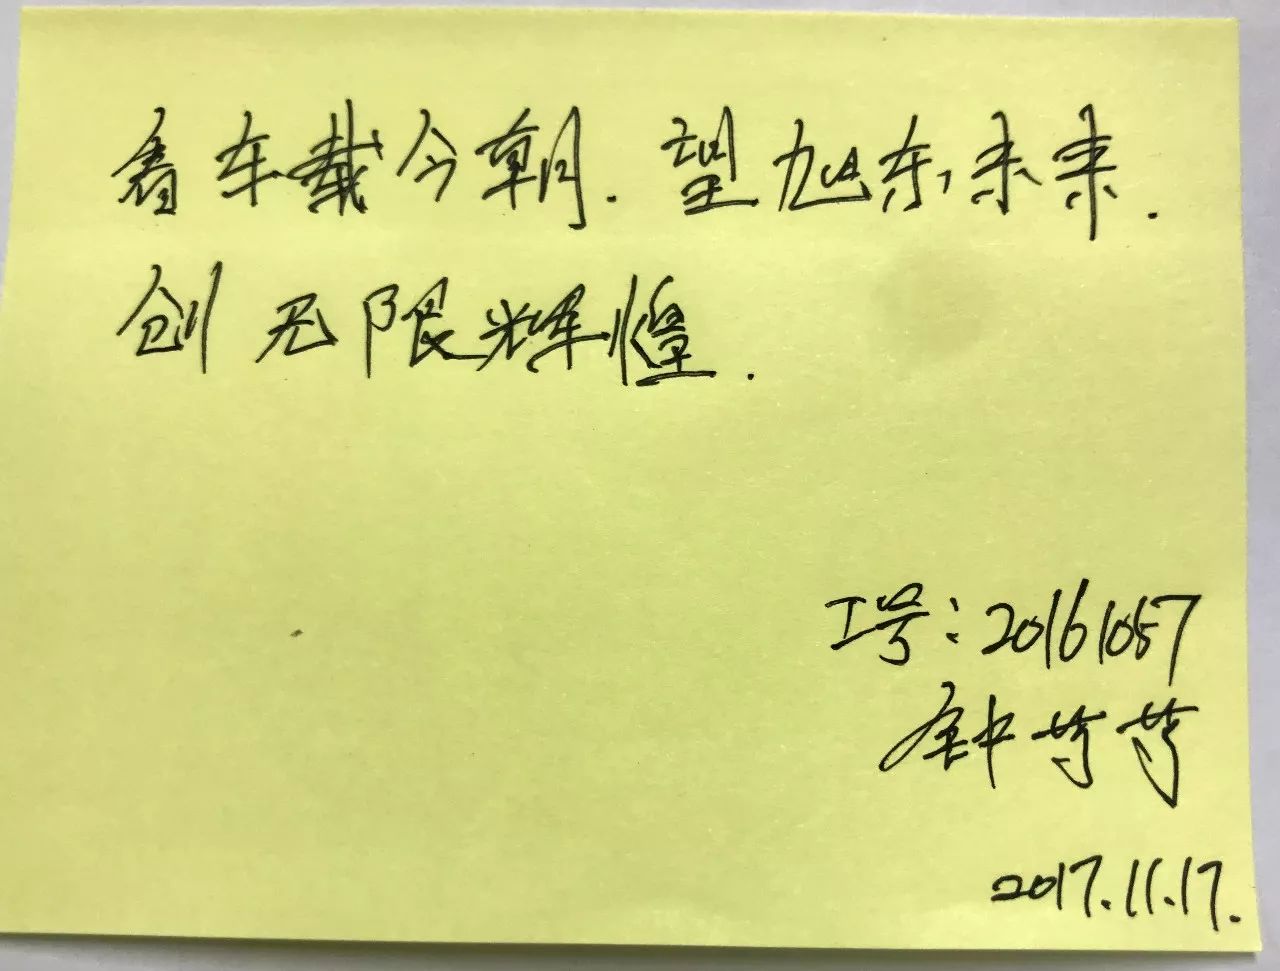 看车载今朝.望旭东未来.
创无限辉煌.
工号:20161057
钟芳芳
2017.11.17.